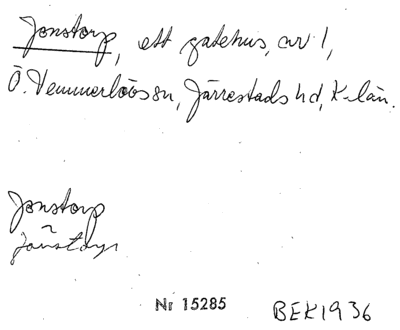 Jonstorp, ett gatehus, av 1,
Ö. Vemmerlövs sn, Järrestads hd, K-län.
Jonstorp
Nr 15285 BEK1936